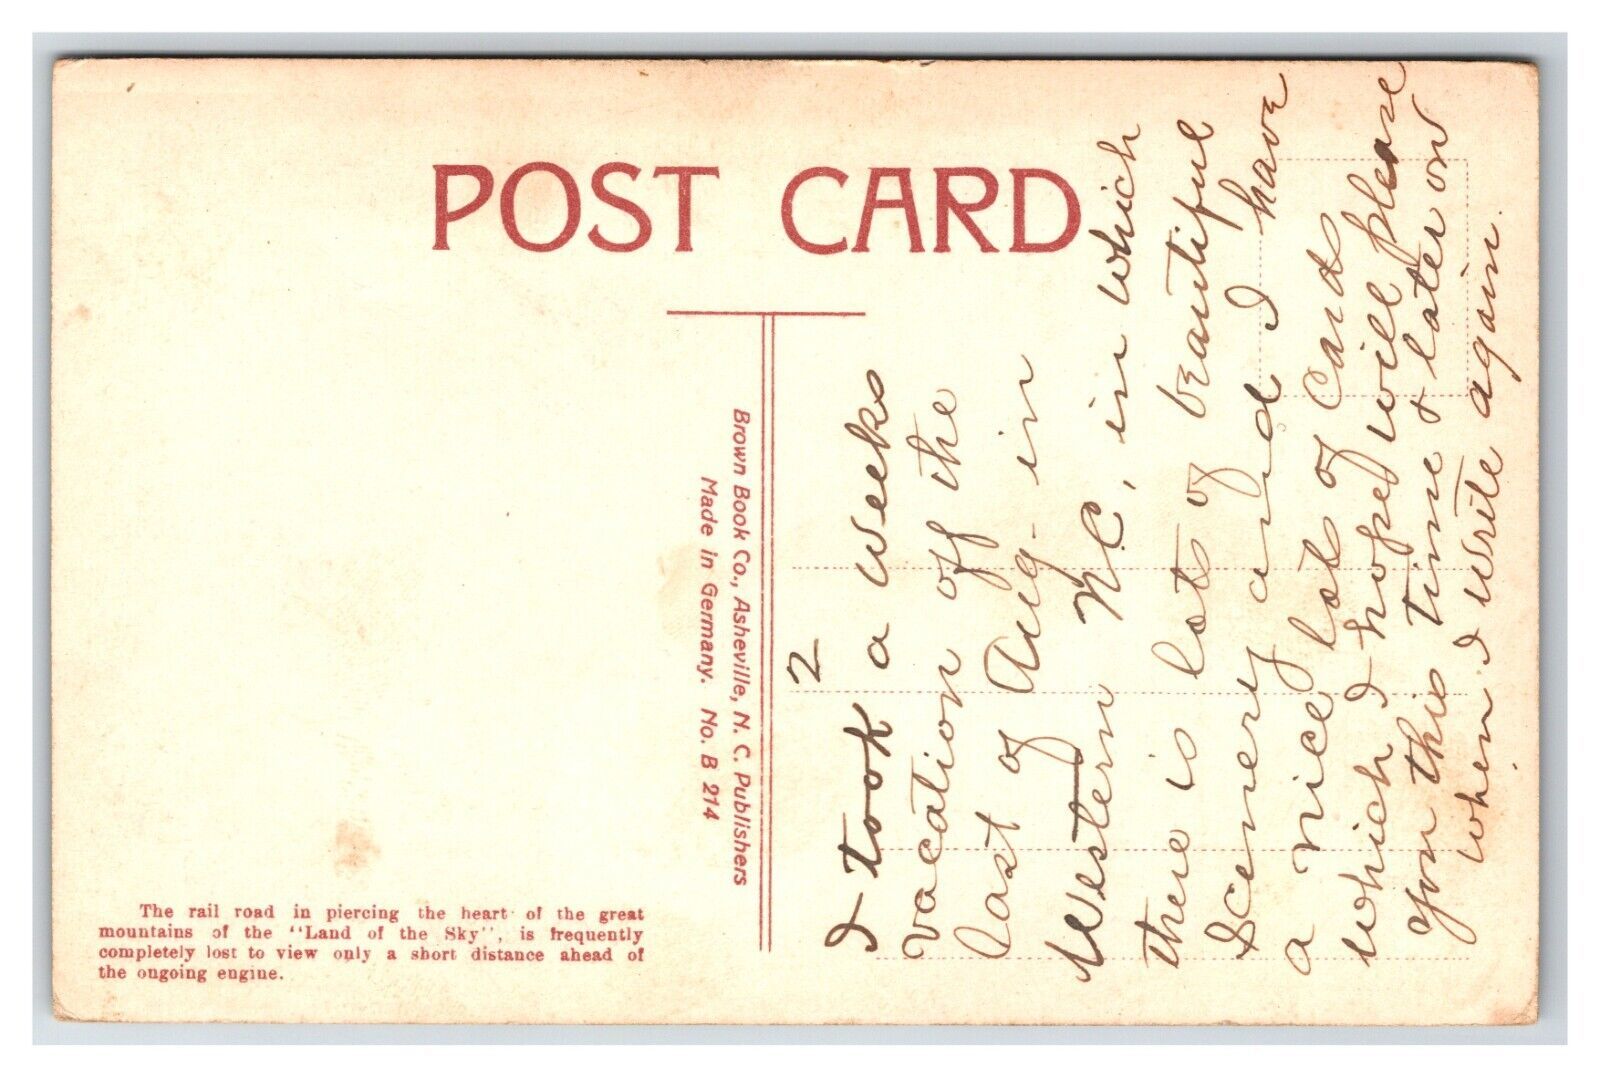 POST CARD
Brown Book Co., Asheville, N. C. Publishers
Made in Germany. No. B 214
The rail road in piercing the heart of the great
mountains of the "Land of the Sky", is frequently
completely lost to view only a short distance ahead of
the ongoing engine.
2
I took a weeks
vacation off the
last of Aug- in
Western N.C, in which
there is lots of beautiful
Scenery and I have
a nice lot of Cards
which I hope will please
you this time & later on
when I write again.